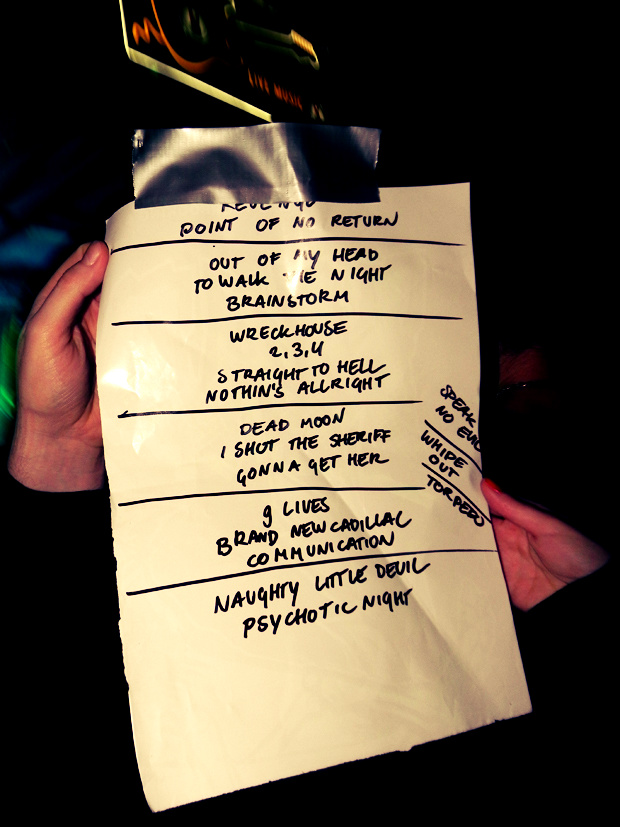 LIVE MUSIC
REVENGE
POINT OF NO RETURN
OUT OF MY HEAD
TO WALK THE NIGHT
BRAINSTORM
WRECKHOUSE
2,3,4
STRAIGHT TO HELL
NOTHIN'S ALLRIGHT
DEAD MOON
I SHUT THE SHERIFF
GONNA GET HER
9 LIVES
BRAND NEW CADILLAC
COMMUNICATION
NAUGHTY LITTLE DEVIL
PSYCHOTIC NIGHT
SPEAK
NO EVIL
WHIPE
OUT
TORPEDO